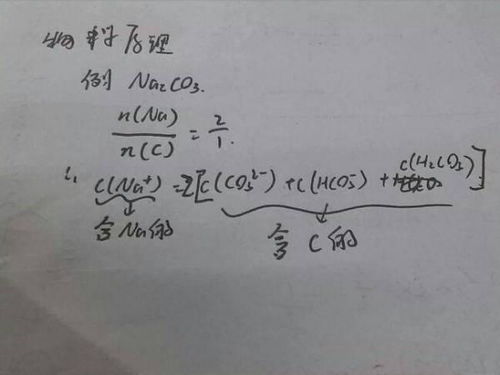 物料原理
例 Na₂CO₃.
n(Na)/n(C) = 2/1.
∴ c(Na⁺) = 2[c(CO₃²⁻) + c(HCO₃⁻) + c(H₂CO₃)]
含Na的 含C的